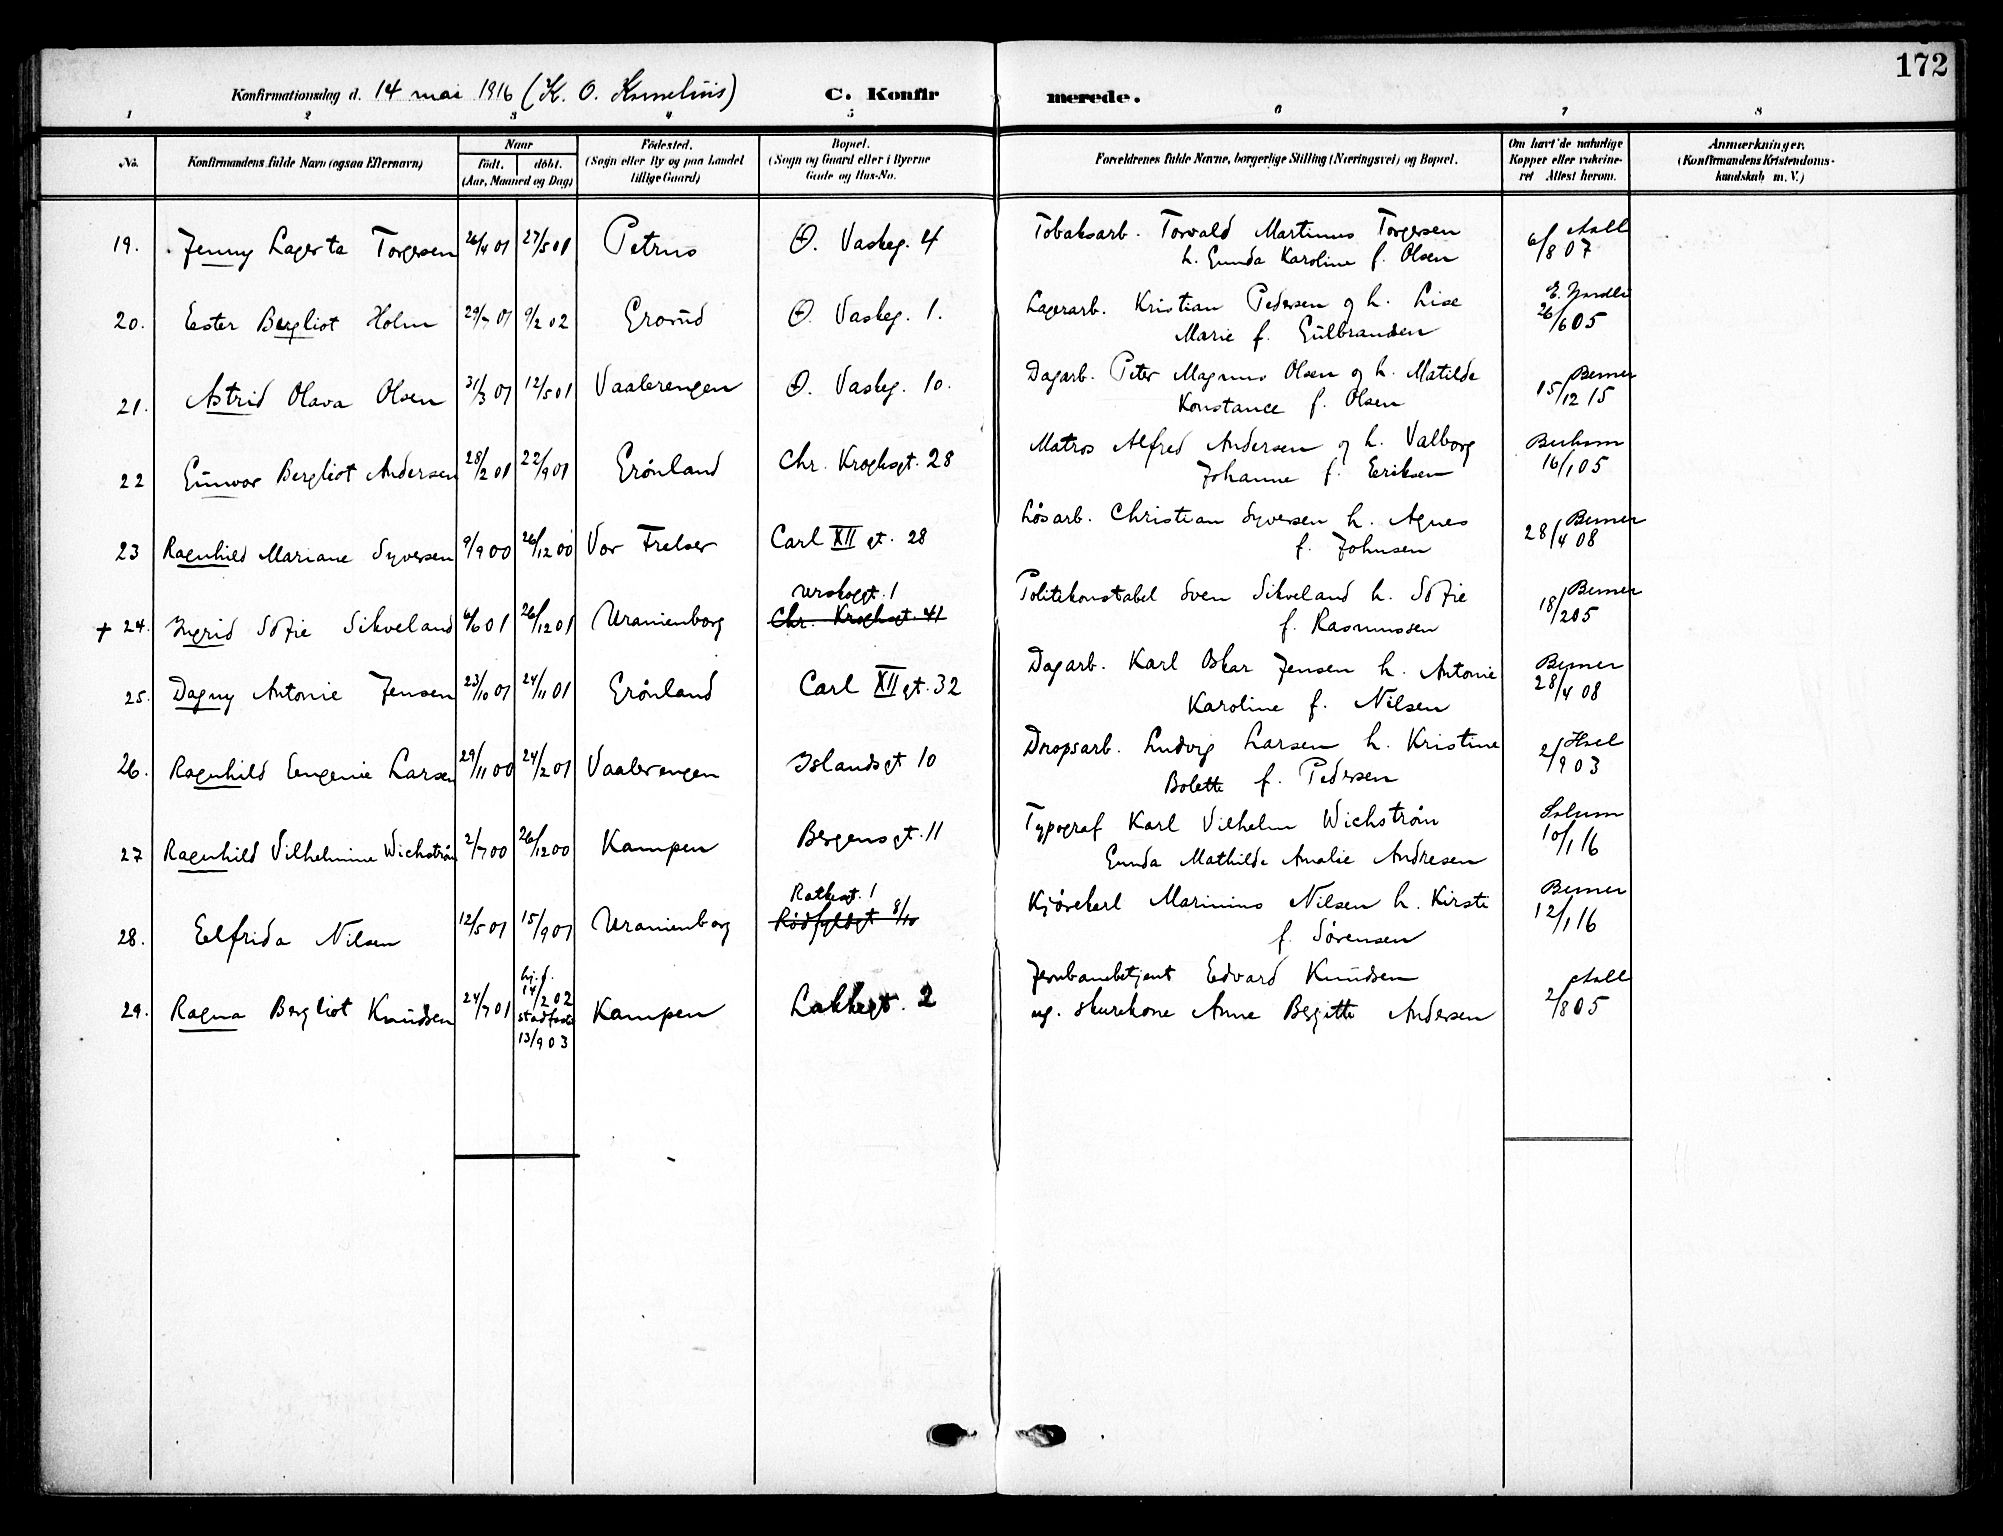 172
Konfirmationsdag d. 14 mai 1916 (K. O. Kornelius) C. Konfirmerede.
1 2 3 4 5 6 7 8
No. Konfirmandens fulde Navn (ogsaa Efternavn) Naar født. døbt. (Aar, Maaned og Dag) Fødested. (Sogn eller By og paa Landet tillige Gaard) Bopæl. (Sogn og Gaard eller i Byerne Gade og Hus-No. Forældrenes fulde Navne, borgerlige Stilling (Næringsvei) og Bopæl. Om havt de naturlige Kopper eller vakcineret Attest herom. Anmærkninger. (Konfirmandens Kristendomskundskab m. V.)
19. Jenny Lagerta Torgersen 26/4 01 27/5 01 Petrus Ø. Vaskeg. 4 Tobaksarb. Torvald Martinus Torgersen Aall
h. Gunda Karoline f. Olsen 6/8 07
20. Ester Bergliot Holm 29/7 01 9/2 02 Grorud Ø. Vaskeg. 1. Lagerarb. Kristian Pedersen og h. Lise
Marie f. Gulbrandsen 26/6 05
21. Astrid Olava Olsen 31/3 01 12/5 01 Vaalerengen Ø. Vaskeg. 10. Dagarb. Peter Magnus Olsen og h. Matilde Berner
Konstance f. Olsen 15/12 15
22 Gunvor Bergliot Andersen 28/2 01 22/9 01 Grønland Chr. Kroghsgt. 28 Matros Alfred Andersen og h. Valborg
Johanne f. Eriksen 16/1 05
23 Ragnhild Mariane Syversen 9/9 00 26/12 00 Vor Frelser Carl XII gt. 28 Løsarb. Christian Syversen h. Agnes Berner
f. Johnsen 28/4 08
+ 24. Ingrid Sofie Sikveland 6/6 01 26/12 01 Uranienborg Urskoggt. 1 Chr. Kroghsgt. 41 Politikonstabel Sven Sikveland h. Sofie Berner
f. Rasmussen 18/2 05
25. Dagny Antonie Jensen 23/10 01 24/11 01 Grønland Carl XII gt. 32 Dagarb. Karl Oskar Jensen h. Antonie Berner
Karoline f. Nilsen 28/4 08
26. Ragnhild Eugenie Larsen 29/11 00 24/2 01 Vaalerengen Islandsgt 10 Dropsarb. Ludvig Larsen h. Kristine
Bolette f. Pedersen 2/9 03
27 Ragnhild Vilhelmine Wichstrøm 2/7 00 26/12 00 Kampen Bergensgt. 11 Typograf Karl Vilhelm Wichstrøm
Gunda Mathilde Amalie Andresen 10/1 16
28. Elfrida Nilsen 12/5 01 15/9 01 Uranienborg Ratkesgt. 1 Rødfyldgt 8/10 Kjørekarl Marinius Nilsen h. Kirsti Berner
f. Sørensen 12/1 16
29. Ragna Bergliot Knudsen 24/7 01 hj. d. 14/2 02 stadfæste 13/9 03 Kampen Lakkegt. 2 Jernbanebetjent Edvard Knudsen Aall
ug. skurekone Anne Bergitte Andersen 2/8 05